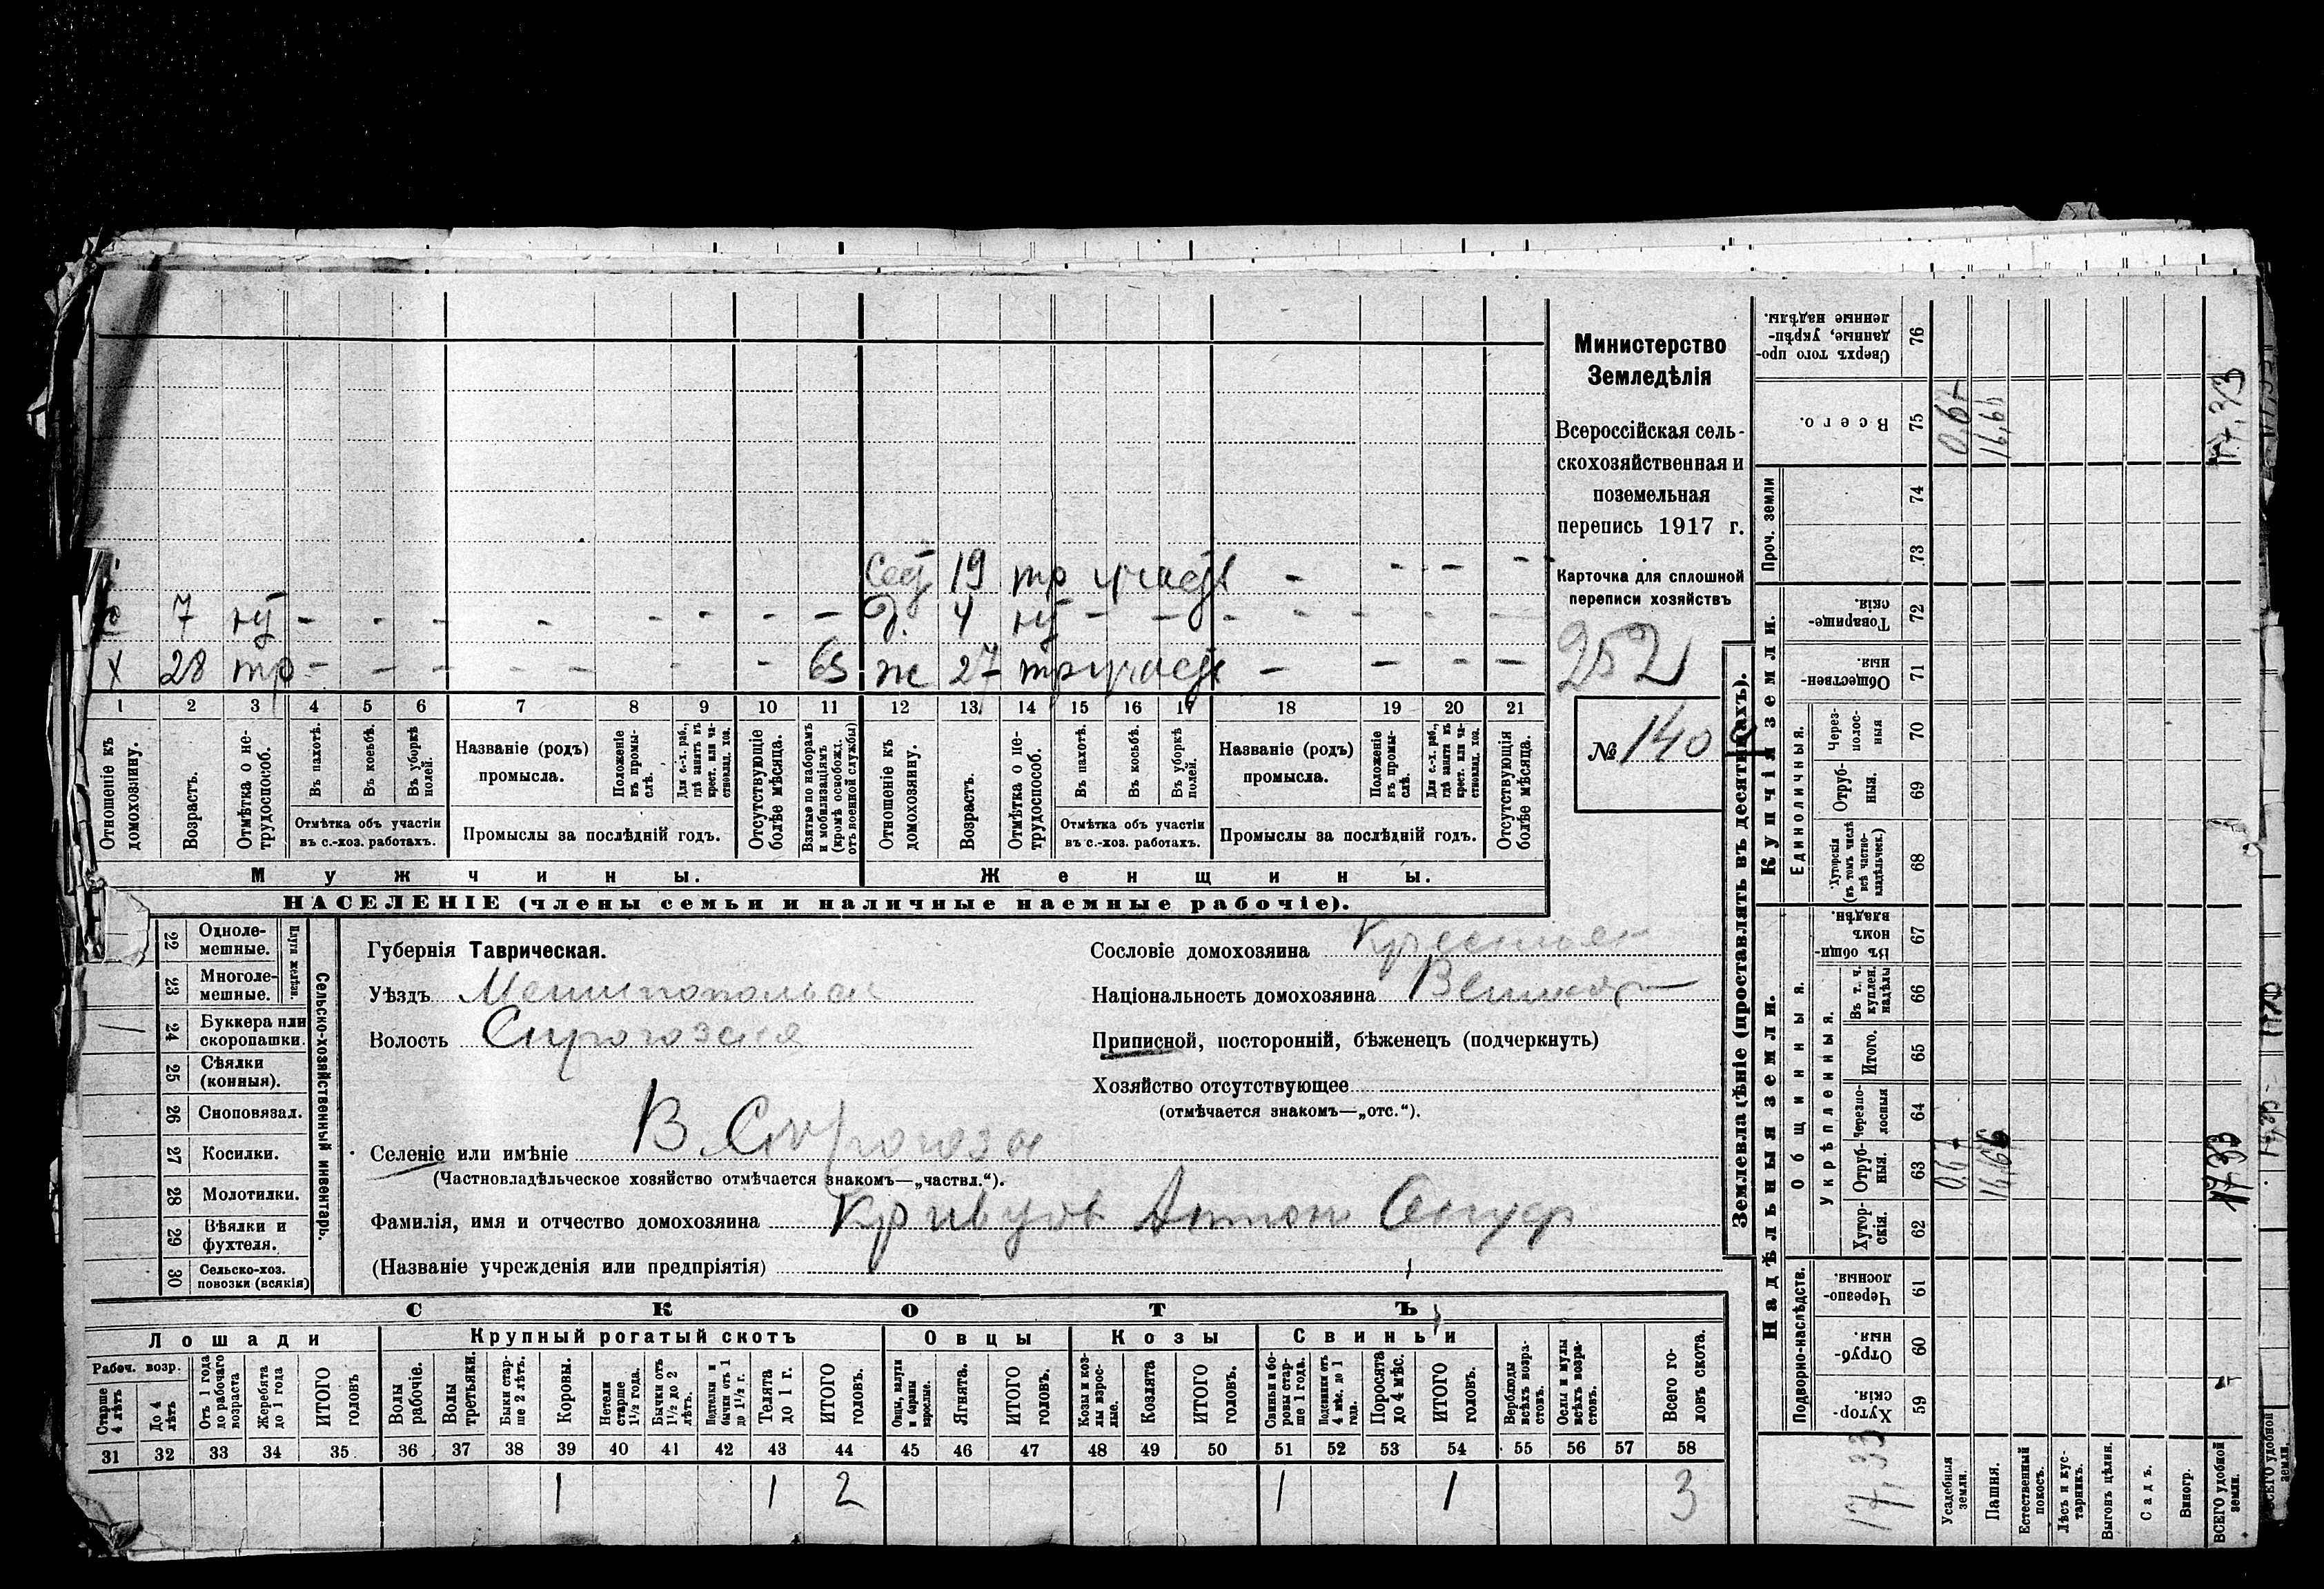 Министерство
Земледѣлія
Всероссійская сель-
скохозяйственная и
поземельная
перепись 1917 г.
Карточка для сплошной
переписи хозяйствъ
252
№ 140
19 тр
7 - - - - - - - - 4 - - - - - - -
х 28 тр - - - - - - - ж 27 тр - - - -
1 2 3 4 5 6 7 8 9 10 11 12 13 14 15 16 17 18 19 20 21
Отношеніе къ домохозяину.
Возрастъ.
Отмѣтка о не-трудоспособ.
Въ пахотѣ.
Въ косьбѣ.
Въ уборкѣ полей.
Отмѣтка объ участіи
въ с.-хоз. работахъ.
Названіе (родъ)
промысла.
Положеніе въ промы-слѣ.
Для с.-х. раб., гдѣ занятъ въ крест. или ча-стновлад. хоз.
Промыслы за послѣдній годъ.
Отсутствующіе болѣе мѣсяца.
Взятые по наборамъ и мобилизаціямъ (кромѣ освобожд. отъ военной службы)
Отношеніе къ домохозяину.
Возрастъ.
Отмѣтка о не-трудоспособ.
Въ пахотѣ.
Въ косьбѣ.
Въ уборкѣ полей.
Отмѣтка объ участіи
въ с.-хоз. работахъ.
Названіе (родъ)
промысла.
Положеніе въ промы-слѣ.
Для с.-х. раб., гдѣ занята въ крест. или ча-стновлад. хоз.
Промыслы за послѣдній годъ.
Отсутствующія болѣе мѣсяца.
Мужчины. Женщины.
НАСЕЛЕНІЕ (члены семьи и наличные наемные рабочіе).
22 Одноле-мешные.
23 Многоле-мешные.
Плуги желѣзн.
24 Буккера или скоропашки.
25 Сѣялки (конныя).
26 Сноповязал.
27 Косилки.
28 Молотилки.
29 Вѣялки и фухтеля.
30 Сельско-хоз. повозки (всякія)
Сельско-хозяйственный инвентарь.
Губернія Таврическая.
Уѣздъ Мелитопольск
Волость Сирогозская
Селеніе или имѣніе В. Сирогозы
(Частновладѣльческое хозяйство отмѣчается знакомъ—„частвл.“).
Фамилія, имя и отчество домохозяина Антон Онуф
(Названіе учрежденія или предпріятія)
Сословіе домохозяина Крестьян
Національность домохозяина Великор
Приписной, посторонній, бѣженецъ (подчеркнуть)
Хозяйство отсутствующее
(отмѣчается знакомъ—„отс.“).
СКОТЪ
Лошади Крупный рогатый скотъ Овцы Козы Свиньи
Рабоч. возр.
Старше 4 лѣтъ
До 4 лѣтъ
Отъ 1 года до рабочаго возраста
Жеребята до 1 года
ИТОГО головъ
Волы рабочіе.
Волы третьяки.
Быки стар-ше 2 лѣтъ.
Коровы.
Нетели старше 1½ года.
Бычки отъ 1½ до 2 лѣтъ.
Нортезки и бычки отъ 1 до 1½ г.
Телята до 1 г.
ИТОГО головъ.
Овцы, валухи и бараны взрослые.
Ягнята.
ИТОГО головъ.
Козы и коз-лы взрос-лые.
Козлята
ИТОГО головъ.
Свиньи и бо-ровы стар-ше 1 года.
Подсвинки отъ 4 мѣс. до 1 года.
Поросята до 4 мѣс.
ИТОГО головъ.
Верблюды всѣхъ возра-стовъ.
Ослы и мулы всѣхъ возра-стовъ.
Всего го-ловъ скота.
31 32 33 34 35 36 37 38 39 40 41 42 43 44 45 46 47 48 49 50 51 52 53 54 55 56 57 58
1 1 2 1 1 3
Землевладѣніе (проставлять въ десятинахъ).
Надѣльныя земли. Купчія земли.
Подворно-наслѣдств.
Общинныя.
Укрѣпленныя.
Единоличныя.
Проч. земли
59 Хутор-скія.
60 Отруб-ныя.
61 Черезпо-лосныя.
62 Хутор-скія.
63 Отруб-ныя.
64 Черезпо-лосныя
65 Итого.
66 Въ т. ч. куплен. надѣлы
67 Въ общи-номъ владѣн.
68 Хуторскія (въ томъ числѣ всѣ частно-владѣльческ.)
69 Отруб-ныя.
70 Через-полос-ныя
71 Обществен-ныя
72 Товарище-скія.
73
74
75 Всего.
76 Сверхъ того про-данные, укрѣп-ленные надѣлы.
Усадебныя земли.
Пашня.
Естественный покосъ.
Лѣсъ и кус-тарникъ.
Выгонъ цѣлин.
Садъ.
Виногр.
ВСЕГО удобной земли.
17,33
0,67
16,66
17,33
0,67
16,66
17,33
ВСЕГО удобной земли.